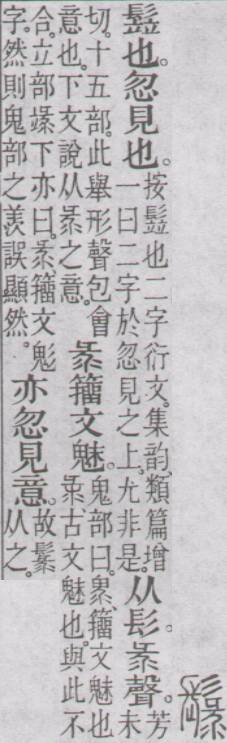 也。忽見也。按也二字衍文。集韵、類篇增一曰二字於忽見之上。尤非是。从髟彔聲。芳未
切。十五部。此舉形聲包會意也。下文說从彔之意。彔籒文魅。鬼部曰。籒文魅也。彔古文魅也。與此不
合。立部下亦曰。彔籒文鬽字。然則鬼部之羨誤顯然。亦忽見意。故从之。